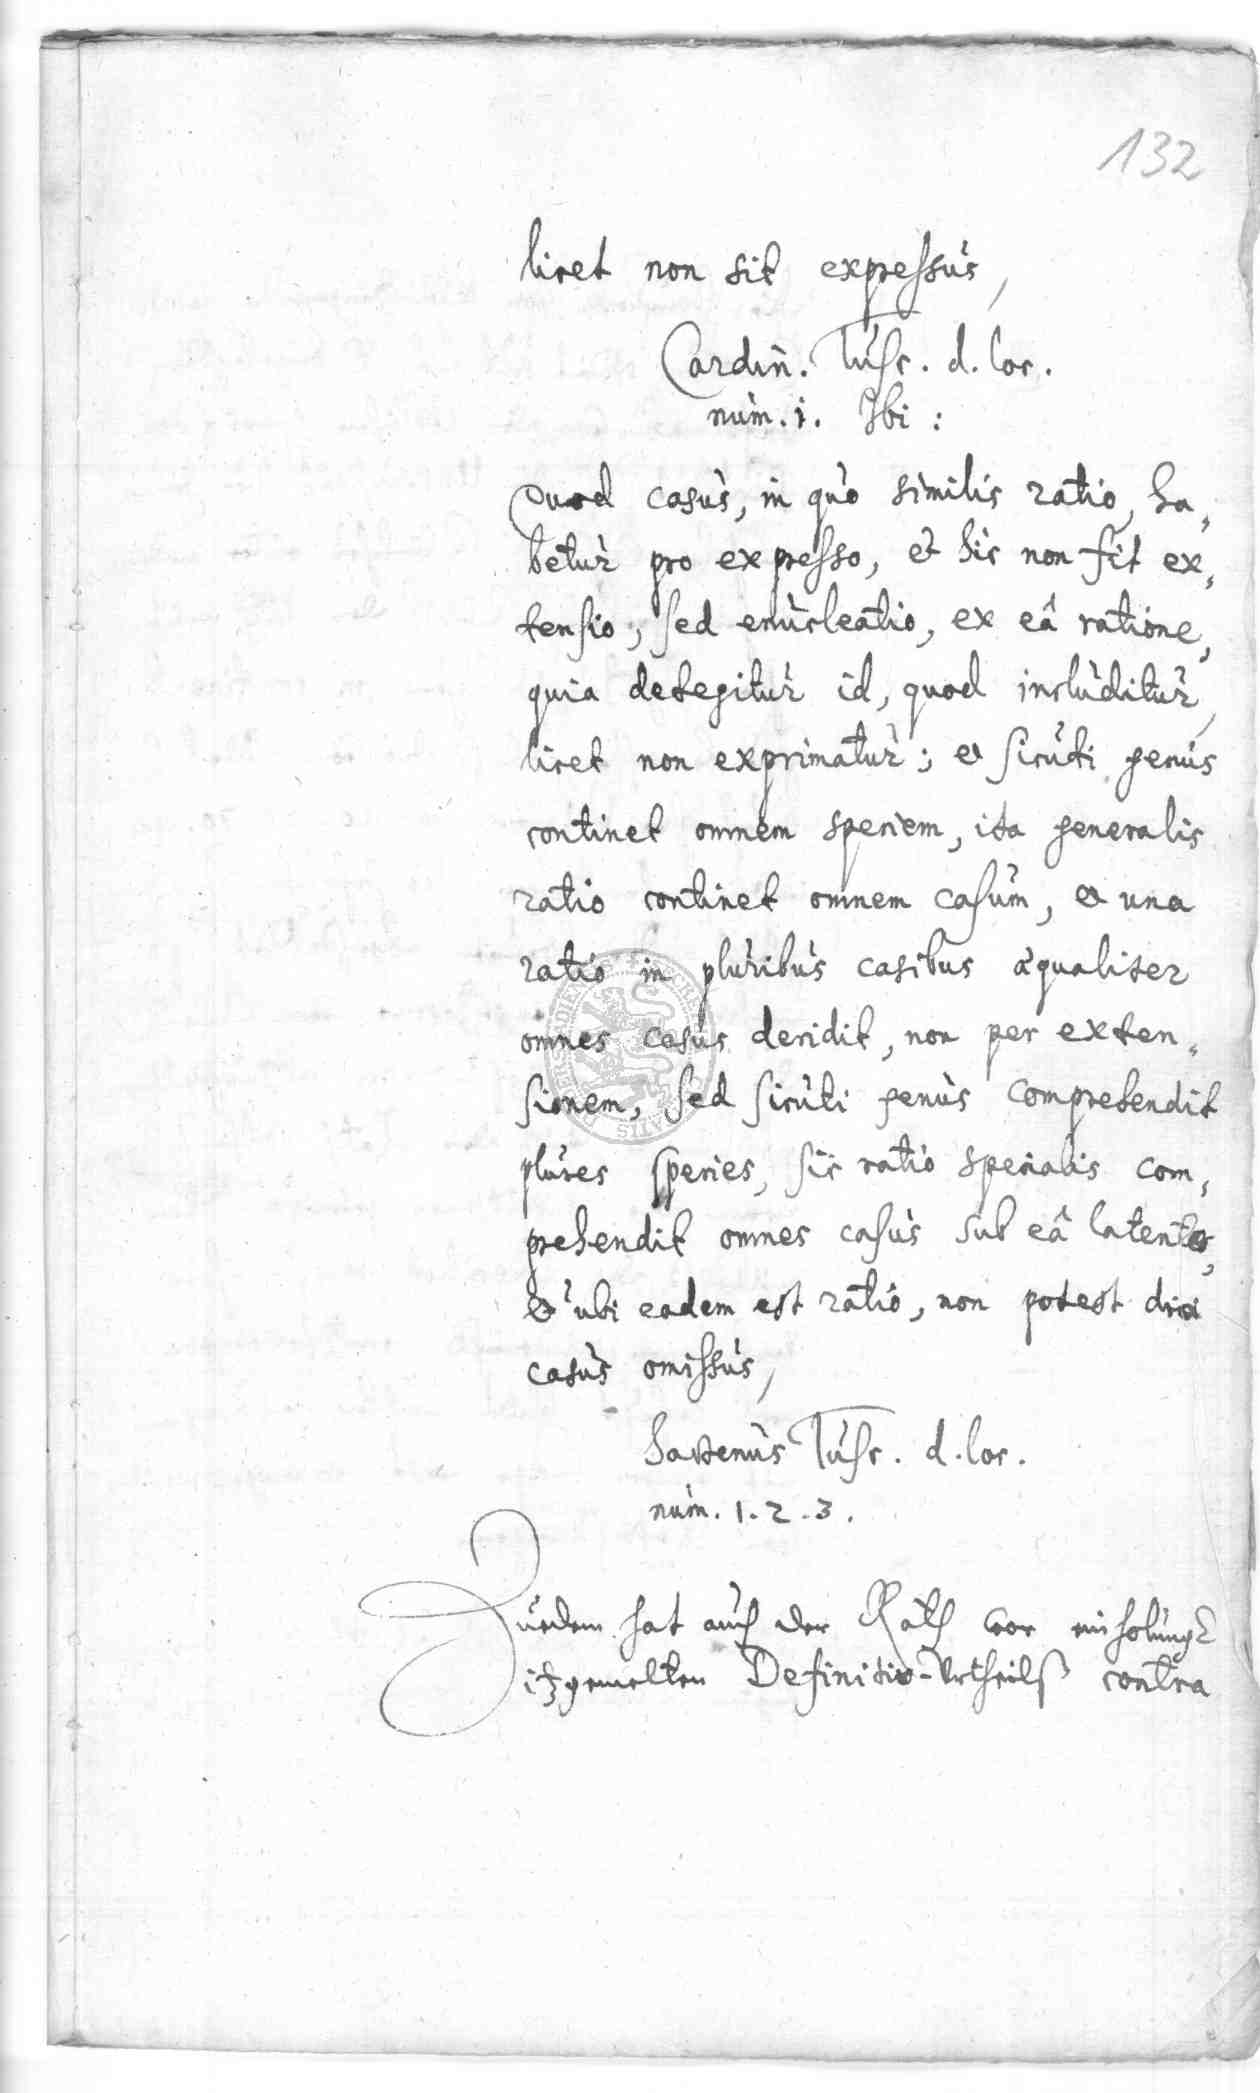 132
licet non sit expressus,
Cardin. Tusc. d. loc.
num. 1. Ibi:
Quod casus, in quo similis ratio, ha-
betur pro expresso, et hic non fit ex-
tensio, sed enucleatio, ex eâ ratione,
quia detegitur id, quod includitur,
licet non exprimatur; et sicuti genus
continet omnem speciem, ita generalis
ratio continet omnem casum, et una
ratio in pluribus casibus aequaliter
omnes casus decidit, non per exten-
sionem, sed sicuti genus comprehendit
plures species, sic ratio specialis com-
prehendit omnes casus sub eâ latentes,
et ubi eadem est ratio, non potest dici
casus omissus,
hactenus Tusc. d. loc.
num. 1. 2. 3.
Zuedem hat auch der Rath vor einholung
itzgemelten Definitiv-Urtheilß contra